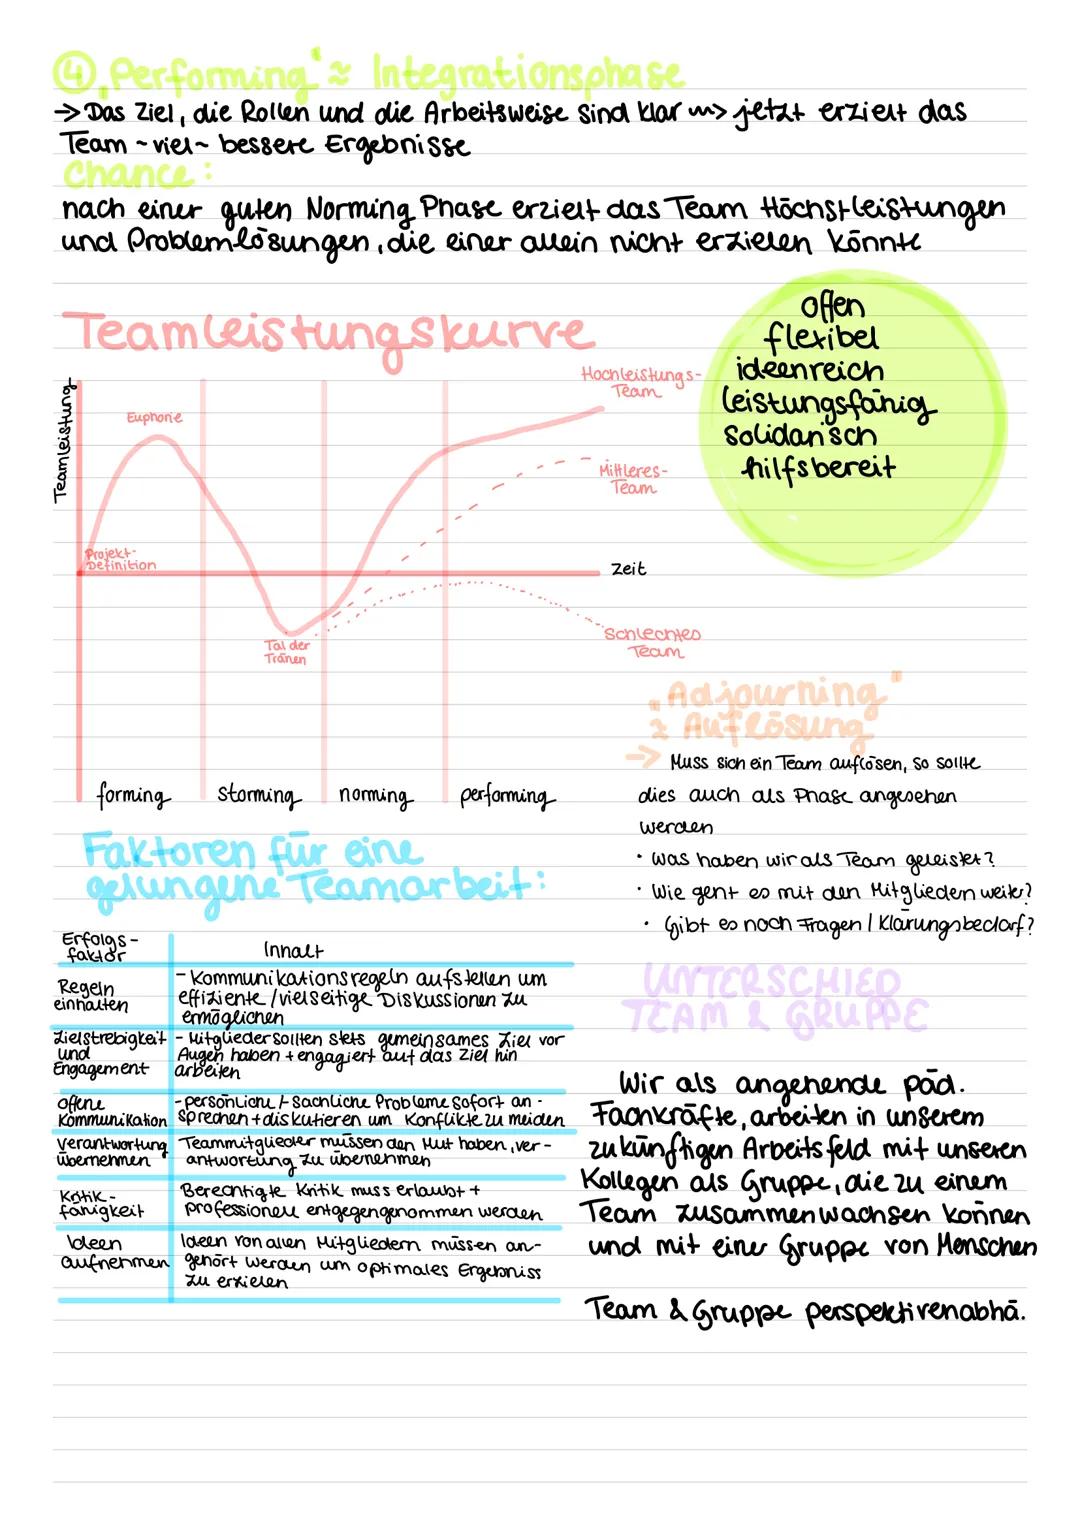 ④ „Performing" ≈ Integrationsphase
→ Das Ziel, die Rollen und die Arbeitsweise sind klar ~> jetzt erzielt das
Team ~viel~ bessere Ergebnisse
Chance:
nach einer guten Norming Phase erzielt das Team Höchstleistungen
und Problemlösungen, die einer allein nicht erzielen könnte
offen
flexibel
ideenreich
leistungsfähig
solidarisch
hilfsbereit
Teamleistungskurve
Teamleistung
Euphorie
Projekt-
Definition
Tal der
Tränen
Hochleistungs-
Team
Mittleres-
Team
Zeit
Schlechtes
Team
forming storming norming performing
„Adjourning"
≈ Auflösung
→ Muss sich ein Team auflösen, so sollte
dies auch als Phase angesehen
werden
· Was haben wir als Team geleistet?
· Wie geht es mit den Mitgliedern weiter?
· Gibt es noch Fragen / Klärungsbedarf?
Faktoren für eine
gelungene Teamarbeit:
Erfolgs-
faktor
Inhalt
Regeln
einhalten
- Kommunikationsregeln aufstellen um
effiziente / vielseitige Diskussionen zu
ermöglichen
Zielstrebigkeit
und
Engagement
- Mitglieder sollten stets gemeinsames Ziel vor
Augen haben + engagiert auf das Ziel hin
arbeiten
offene
Kommunikation
- persönliche /- sachliche Probleme sofort an-
sprechen + diskutieren um Konflikte zu meiden
Verantwortung
übernehmen
Teammitglieder müssen den Mut haben, ver-
antwortung zu übernehmen
Kritik-
fähigkeit
Berechtigte Kritik muss erlaubt +
professionell entgegengenommen werden
Ideen
aufnehmen
Ideen von allen Mitgliedern müssen an-
gehört werden um optimales Ergebniss
zu erzielen
UNTERSCHIED
TEAM & GRUPPE
Wir als angehende päd.
Fachkräfte, arbeiten in unserem
zukünftigen Arbeitsfeld mit unseren
Kollegen als Gruppe, die zu einem
Team zusammenwachsen können
und mit einer Gruppe von Menschen
Team & Gruppe perspektivenabhä.